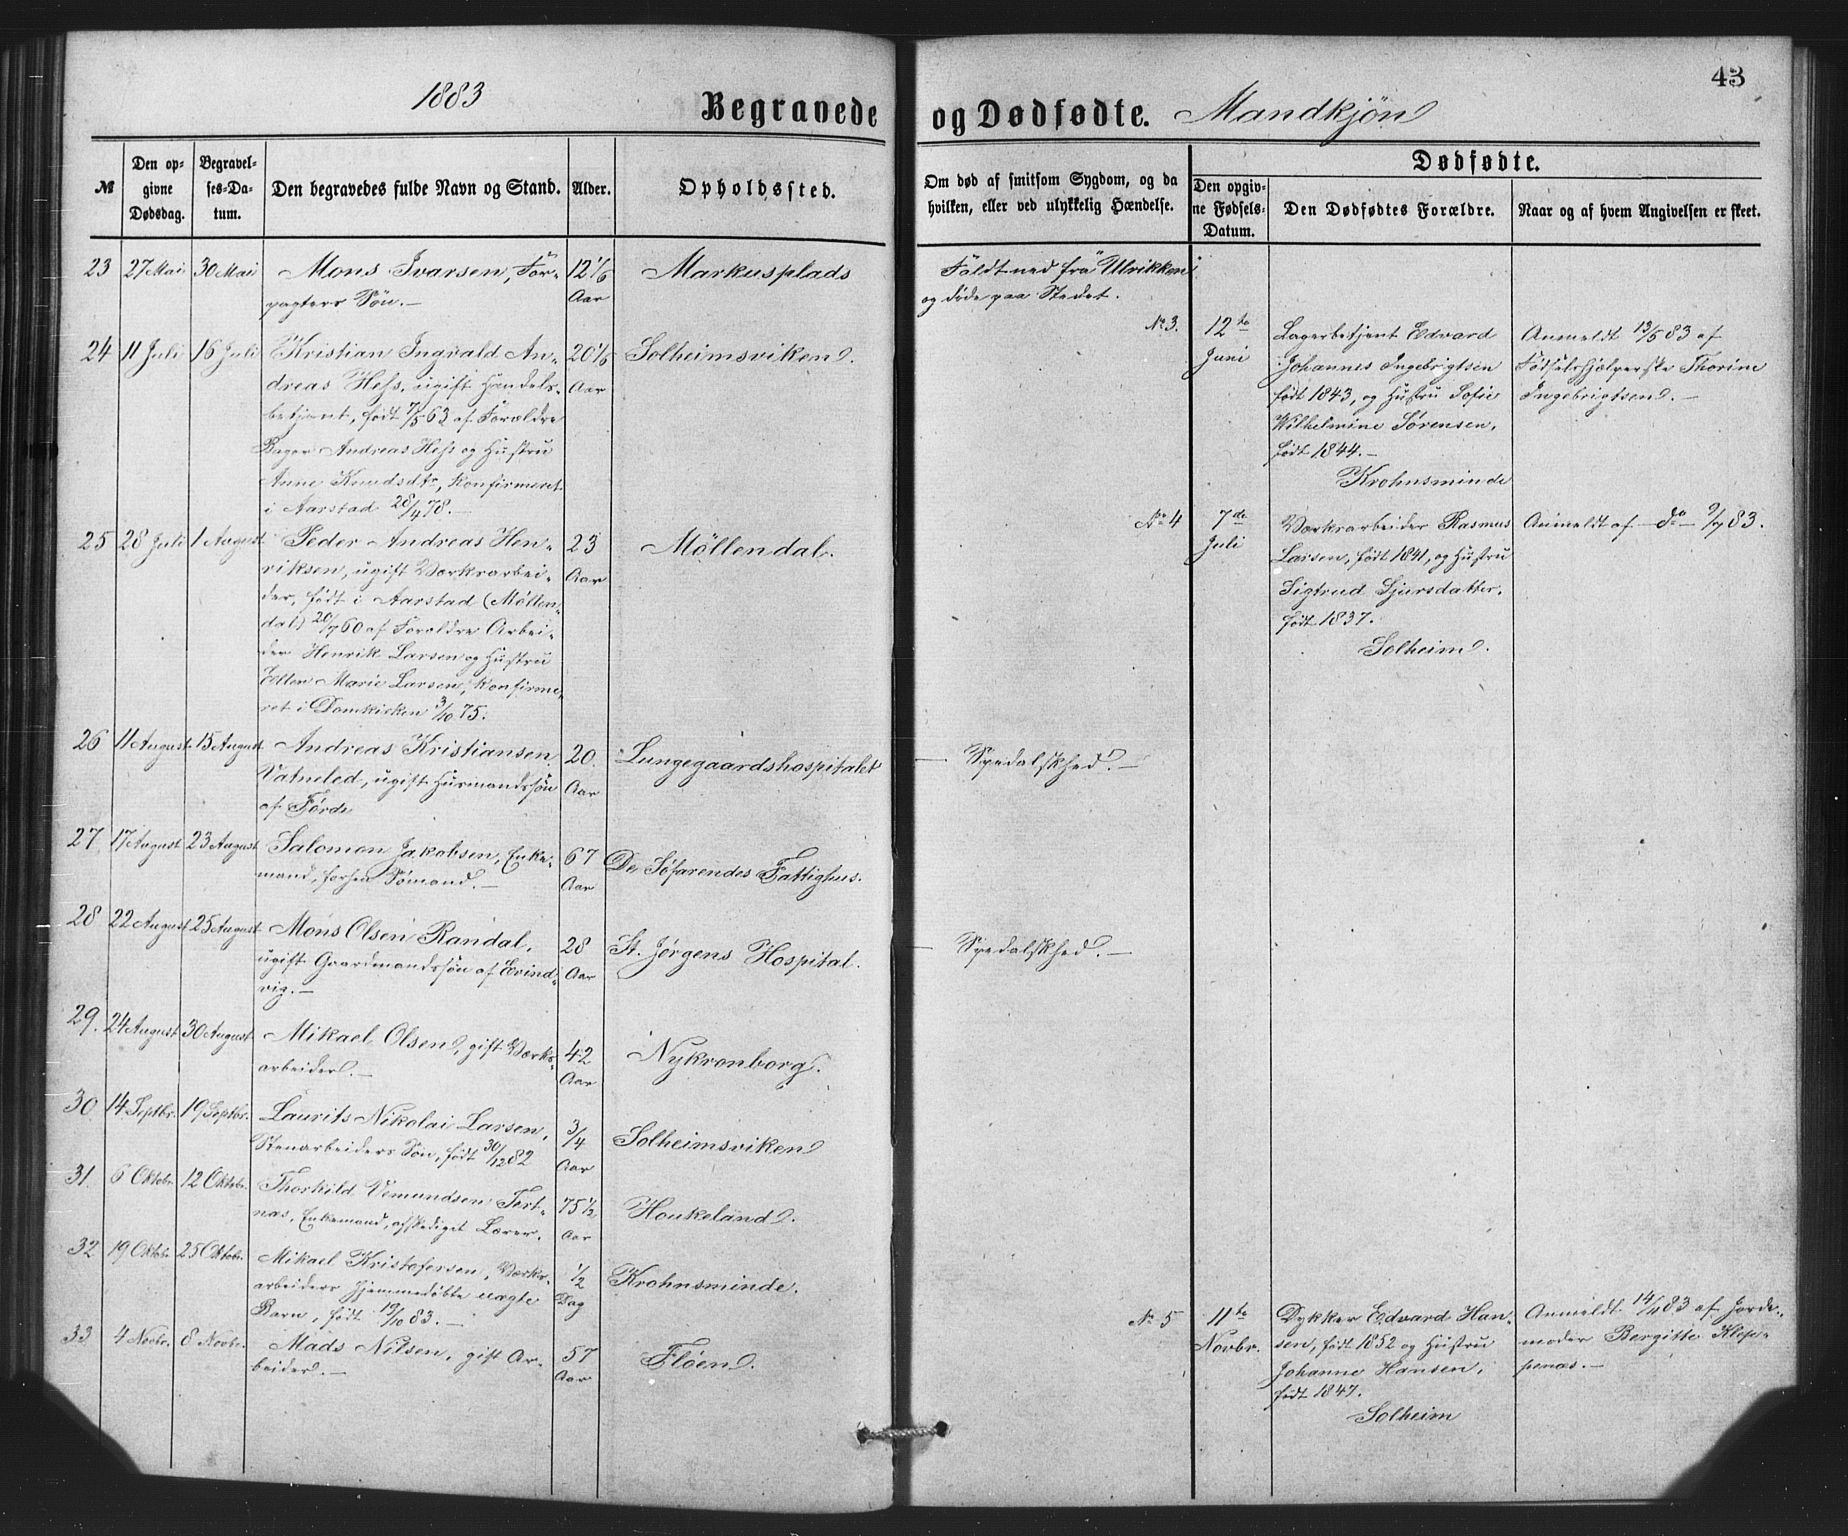 1883
Begravede og Dødfødte. Mandkjøn
43
№
Den opgivne Dødsdag.
Begravelses-Datum.
Den begravedes fulde Navn og Stand.
Alder.
Opholdssted.
Om død af smitsom Sygdom, og da
hvilken, eller ved ulykkelig Hændelse.
Dødfødte.
Den opgivne Fødsels-Datum.
Den Dødfødtes Forældre.
Naar og af hvem Angivelsen er skeet.
23 27 Mai 30 Mai Mons Ivarsen, For- 12 1/6 Markusplads Faldt ned fra Ulrikken
pagters Søn.— Aar og døde paa Stedet.
24 11 Juli 16 Juli Kristian Ingvald An- 20 1/6 Solheimsviken.
dreas Hess, ugift Handels- Aar
betjent, født 7/5 63 af Forældre
Bager Andreas Hess og Hustru
Anne Knudsdtr, konfirmeret
i Aarstad 28/4 78.—
25 28 Juli 1 August Peder Andreas Hen- 23 Møllendal.
riksen, ugift Værksarbei- Aar
der, født i Aarstad (Møllen-
dal) 20/7 60 af Forældre Arbei-
der Henrik Larsen og Hustru
Ellen Marie Larsen, konfirme-
ret i Domkirken 3/10 75.
26 11 August 15 August Andreas Kristiansen 20 Lungegaardshospitalet — Spedalskhed.—
Vatneled, ugift Husmandssøn Aar
af Førde
27. 17 August 23 August Salomon Jakobsen, Enke- 67 De Søfarendes Fattighus.
mand, forhen Sømand.— Aar
28 22 August 25 August Mons Olsen Randal, 28 St. Jørgens Hospital. — Spedalskhed.—
ugift Gaardmandssøn af Evind- Aar
vig.—
29. 24 August 30 August Mikael Olsen, gift Værks- 42 Nykronborg.
arbeider.— Aar
30. 14 Septbr. 19 Septbr. Laurits Nikolai Larsen, 3/4 Solheimsviken
Stenarbeiders Søn, født 30/12 82 Aar
31. 6 Oktobr. 12 Oktobr. Thorkild Vemundsen Tert- 75 1/2 Houkeland.
næs, Enkemand, afskediget Lærer. Aar
32 19 Oktobr. 25 Oktobr. Mikael Kristofersen, Værks- 1/2 Krohnsminde.
arbeiders hjemmedøbte uægte Dag
Barn, født 19/10 83.—
33 4 Novbr. 8 Novbr. Mads Nilsen, gift Ar- 57 Fløen.
beider.— Aar
No 3. 12te Juni
Lagerbetjent Edvard
Johannes Ingebrigtsen
født 1843, og Hustru Sofie
Wilhelmine Sørensen,
født 1844.—
Krohnsminde
Anmeldt 13/6 83 af
Fødselshjælperske Thorine
Ingebrigtsen.—
No 4 7de Juli
Værksarbeider Rasmus
Larsen, født 1841, og Hustru
Sigtrud Sjursdatter,
født 1837.
Solheim.
Anmeldt af — do — 9/7 83.
No 5 11te Novbr.
Dykker Edvard Han-
sen, født 1852 og Hustru
Johanne Hansen,
født 1847.
Solheim
Anmeldt 14/11 83 af Jorde-
moder Bergitte Klep-
penæs.—